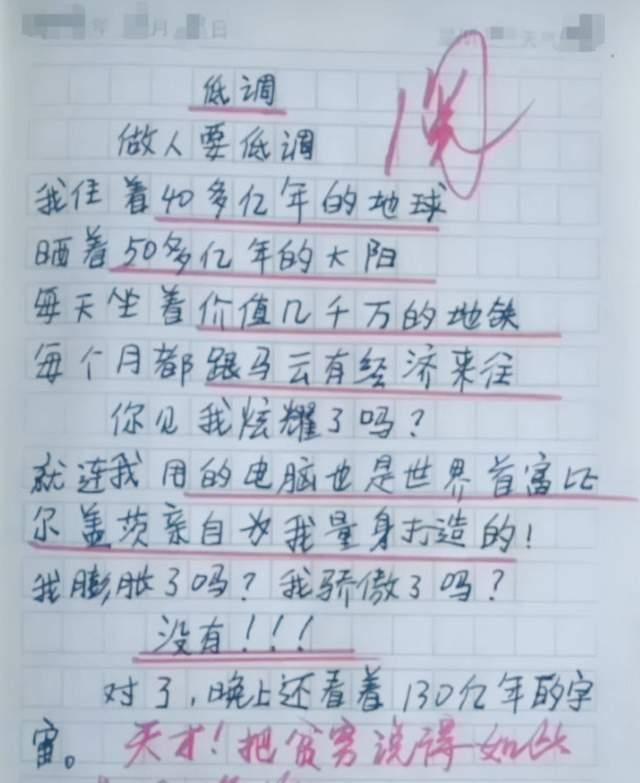 年 月 日 天气
低调
做人要低调
我住着40多亿年的地球
晒着50多亿年的大阳
每天坐着价值几千万的地铁
每个月都跟马云有经济来往
你见我炫耀了吗?
就连我用的电脑也是世界首富比
尔盖茨亲自为我量身打造的!
我膨胀了吗?我骄傲了吗?
没有!!!
对了,晚上还看着130亿年的宇
宙。 天才!把贫穷说得如此